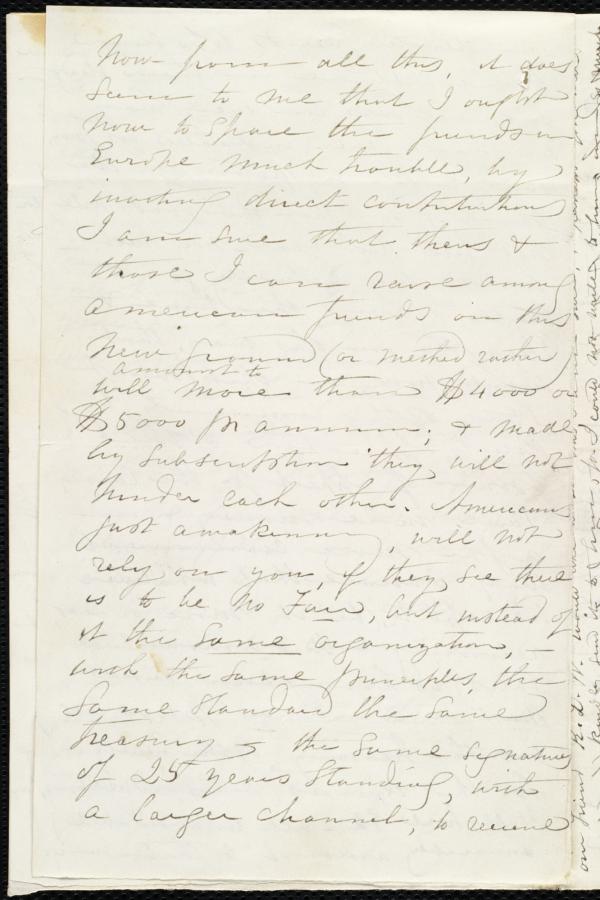 Now from all this, it does
seem to me that I ought
now to spare the friends in
Europe much trouble, by
inviting direct contributions
I am sure that theirs &
those I can raise among
American friends on this
new ground (or method rather)
amount to
will more than $4000 or
$5000 pr annum; & made
by subscription they will not
hinder each other. Americans
just awakening, will not
rely on you, if they see there
is to be no Fair, but instead of
it the same organization, —
with the same principles, the
same standard the same
treasury & the same signatures
of 25 years standing, with
a larger channel, to receive
our friend R. D. W. would
kindly send its to him, for I could not write to him